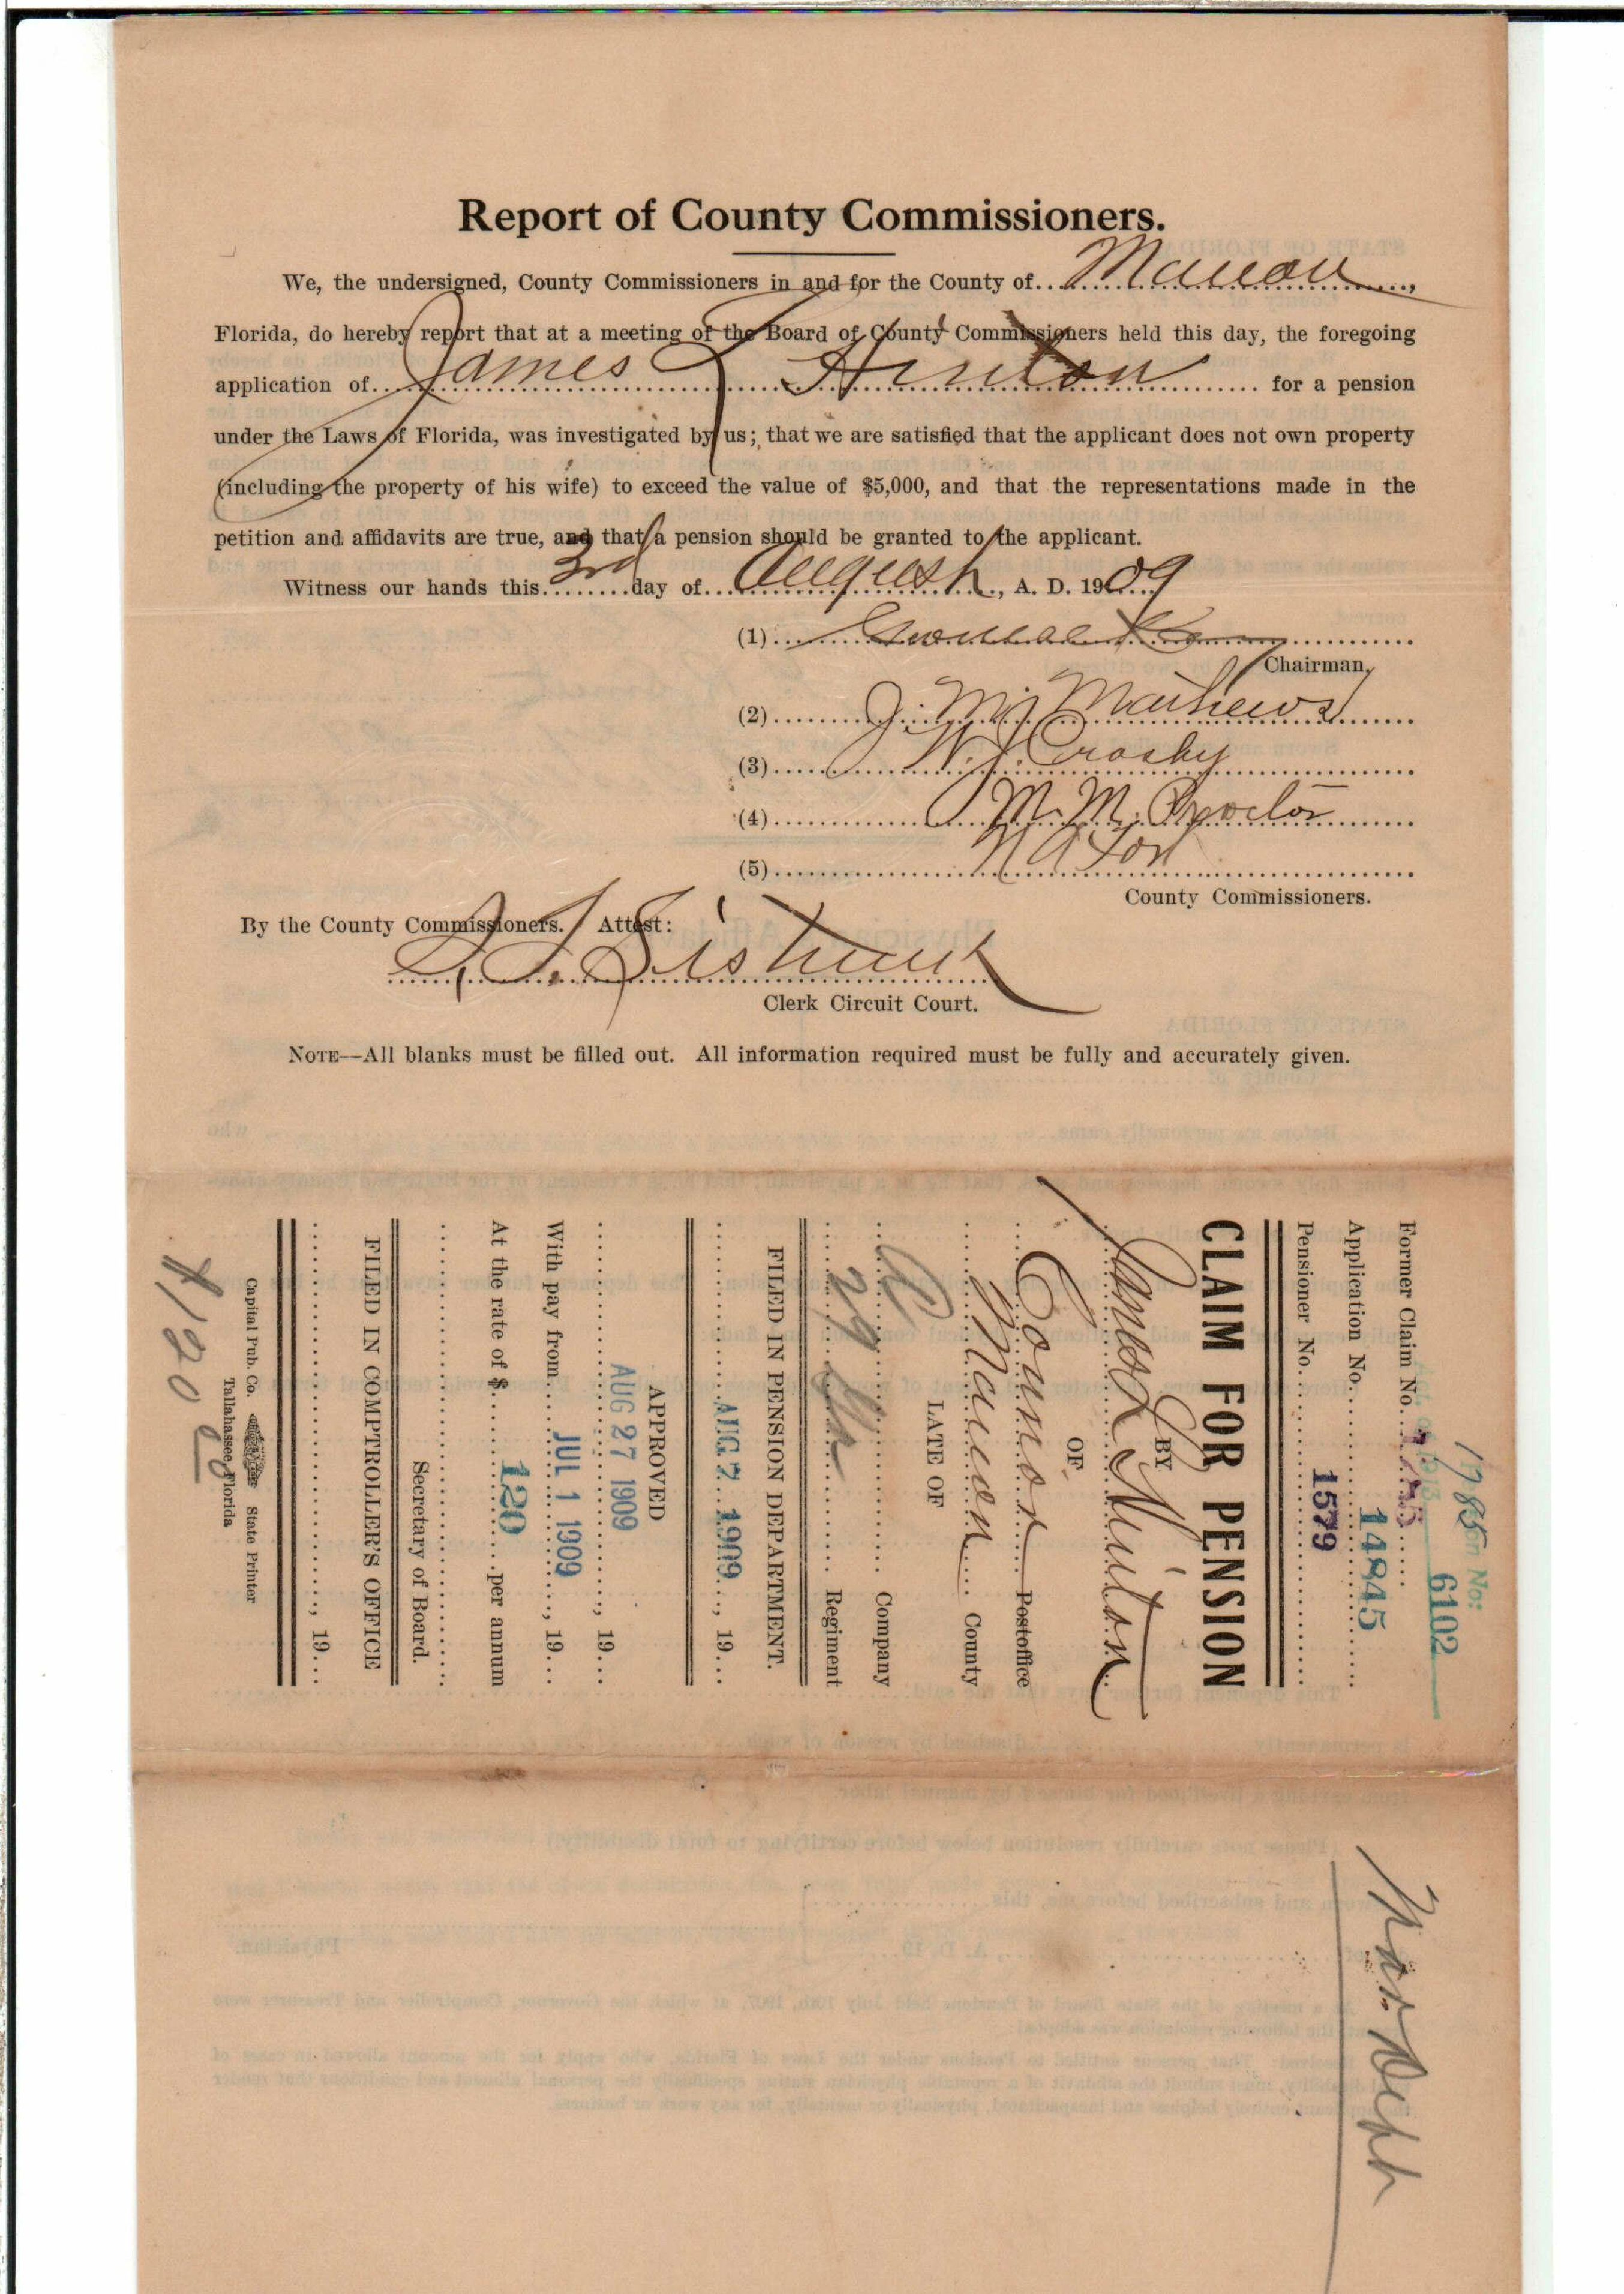 Report of County Commissioners.
We, the undersigned, County Commissioners in and for the County of Marion,
Florida, do hereby report that at a meeting of the Board of County Commissioners held this day, the foregoing
application of James Hinton for a pension
under the Laws of Florida, was investigated by us; that we are satisfied that the applicant does not own property
(including the property of his wife) to exceed the value of $5,000, and that the representations made in the
petition and affidavits are true, and that a pension should be granted to the applicant.
Witness our hands this 3rd day of August, A. D. 1909
(1)
Chairman,
(2) J. M. Mathews
(3) W. J. Crosby
(4) M. M. Proctor
(5) N A Fort
County Commissioners.
By the County Commissioners. Attest:
S. T. Sistrunk
Clerk Circuit Court.
NOTE—All blanks must be filled out. All information required must be fully and accurately given.
No:
6102
Former Claim No.
Application No. 14845
Pensioner No. 1579
CLAIM FOR PENSION
BY
James Hinton
OF
Connor Postoffice
Marion County
LATE OF
Company
29 Regiment
FILED IN PENSION DEPARTMENT.
AUG 7 1909, 19
APPROVED
AUG 27 1909, 19
With pay from JUL 1 1909, 19
At the rate of $ 120 per annum
Secretary of Board.
FILED IN COMPTROLLER'S OFFICE
, 19
Capital Pub. Co. State Printer
Tallahassee, Florida
$120
War Dept